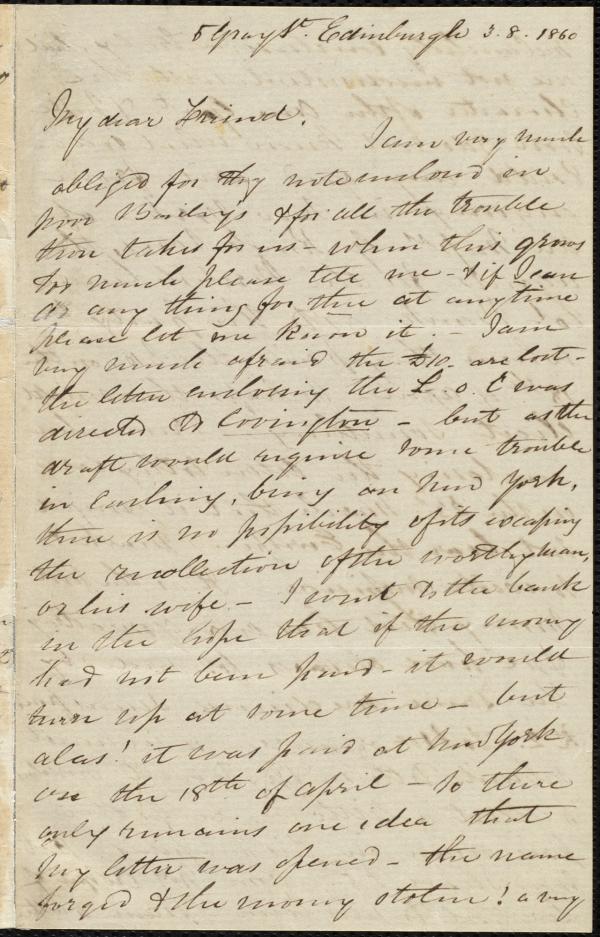 5 Gray St. Edinburgh 3.8.1860
My dear Friend.
I am very much
obliged for thy note enclosed in
poor Bailey's & for all the trouble
thou takes for us - when this grows
too much please tell me - & if I can
do any thing for thee at anytime
please let me know it. - I am
very much afraid the £10. are lost -
the letter enclosing the L. o. C was
directed to Covington - but as the
draft would require some trouble
in cashing, being on New York,
there is no possibility of its escaping
the recollection of the worthy man,
or his wife - I went to the bank
in the hope that if the money
had not been paid - it would
turn up at some time - but
alas! it was paid at New York
on the 18th of April - so there
only remains one idea that
my letter was opened - the name
forged & the money stolen! a very